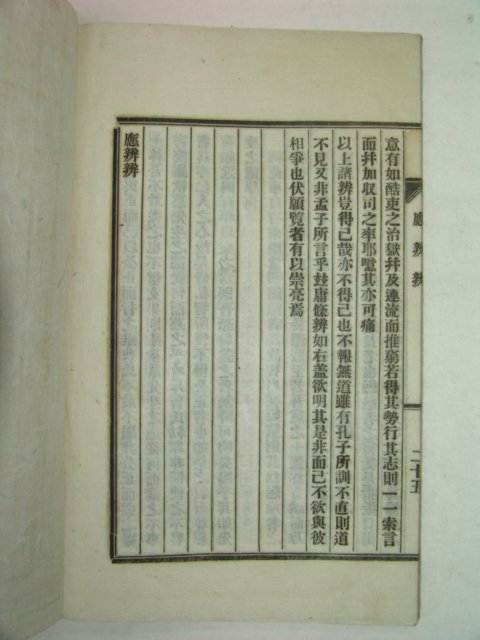 應辨辨
二十五
意有如酷吏之治獄幷及連流而推窮若得其勢行其志則一一索言
而幷加収司之率耶噫其亦可痛
以上諸辨豈得已哉亦不得已也不報無道雖有孔子所訓不直則道
不見又非孟子所言乎玆庸條辨如右盖欲明其是非而已不欲與彼
相爭也伏願覽者有以崇亮焉
應辨辨